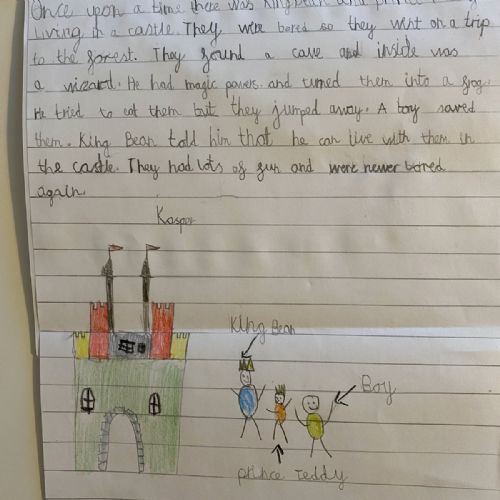 Once upon a time there was King Bean and prince
living in a castle. They were bored so they went on a trip
to the forest. They found a cave and inside was
a wizard. He had magic powers and turned them into a frog.
He tried to eat them but they jumped away. A boy saved
them. King Bean told him that he can live with them in
the castle. They had lots of fun and were never bored
again.
Kaspar
King Bean
Boy
prince Teddy